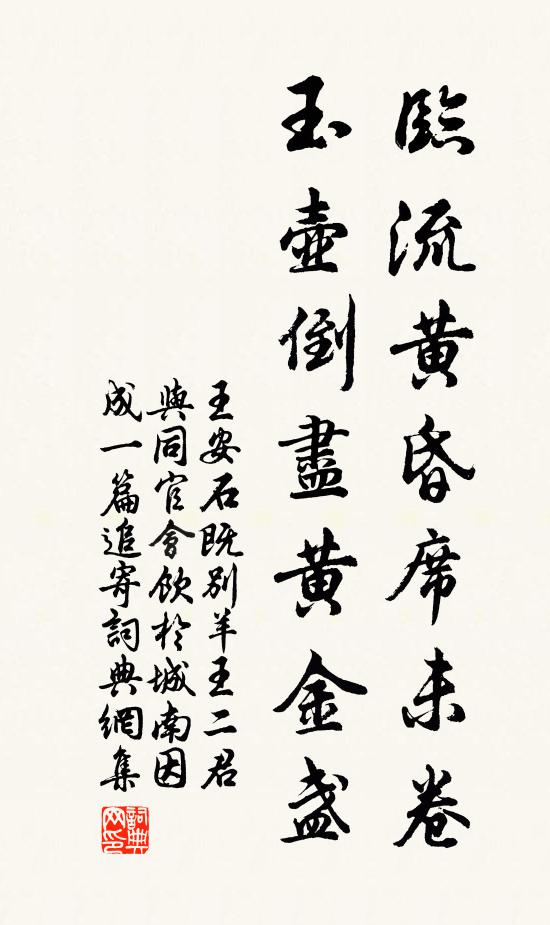 臨流黄昏席未卷
玉壺倒盡黄金盞
王安石既别羊王二君
與同官會飲於城南因
成一篇追寄詞典網集
詞典網印